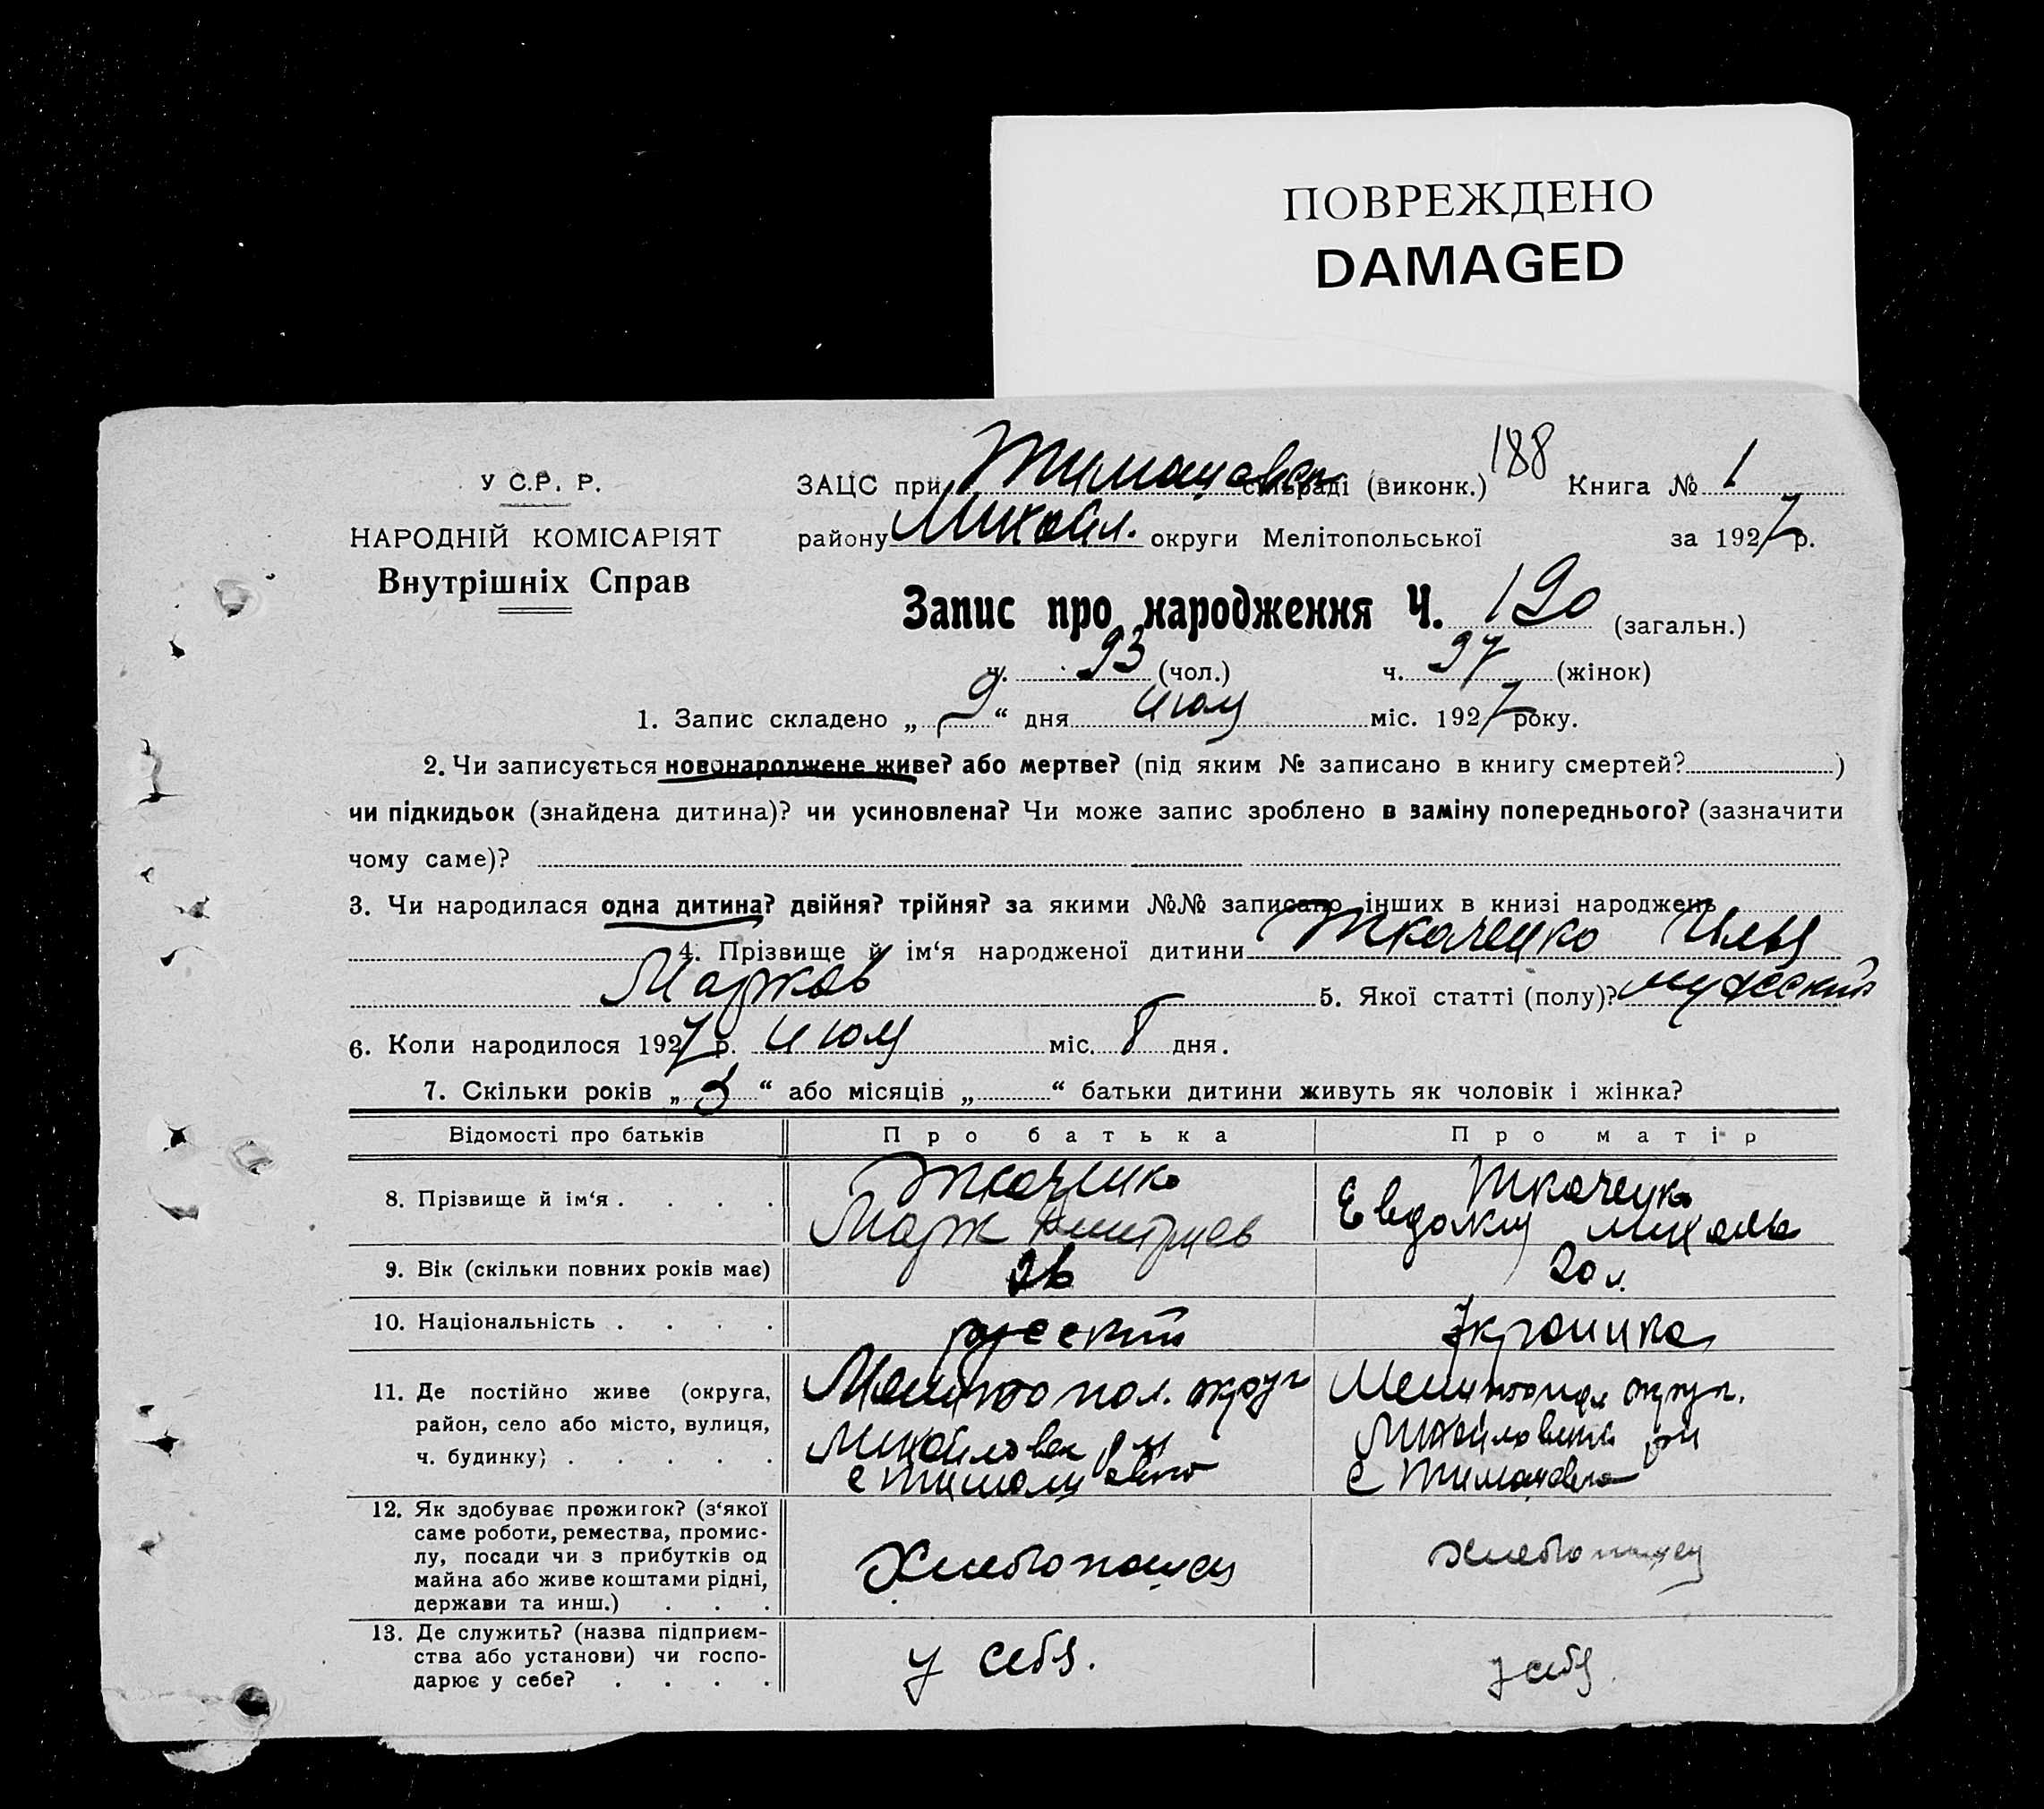 ПОВРЕЖДЕНО
DAMAGED
У С.Р. Р.
НАРОДНІЙ КОМІСАРІЯТ
Внутрішніх Справ
ЗАЦС при Тимошовск сільраді (виконк.) 188 Книга № 1
району Михайл. округи Мелітопольської за 1927 р.
Запис про народження Ч. 190 (загальн.)
ч. 93 (чол.) ч. 97 (жінок)
1. Запис складено „ 9 “ дня июля міс. 1927 року.
2. Чи записується новонароджене живе? або мертве? (під яким № записано в книгу смертей? )
чи підкидьок (знайдена дитина)? чи усиновлена? Чи може запис зроблено в заміну попереднього? (зазначити
чому саме)?
3. Чи народилася одна дитина? двійня? трійня? за якими №№ записано інших в книзі народжень
4. Прізвище й ім‘я народженої дитини Ткаченко Илья
Марков 5. Якої статті (полу)? мужеский
6. Коли народилося 1927 р. июля міс. 8 дня.
7. Скільки років „ 3 “ або місяців „ “ батьки дитини живуть як чоловік і жінка?
Відомості про батьків Про батька Про матір
8. Прізвище й ім‘я . . . . Ткаченко Ткаченко
Марк Дмитриев Евдокия
9. Вік (скільки повних років має) 26 20 л.
10. Національність . . . . русский Украинка
11. Де постійно живе (округа, Мелитопол. округ Мелитопол округ.
район, село або місто, вулиця, Михайловск р-н Михайловский р-н
ч. будинку) . . . . . с Тимошовка с Тимошовка
12. Як здобуває прожиток? (з‘якої
саме роботи, ремества, промис-
лу, посади чи з прибутків од Хлебопашец хлебопашец
майна або живе коштами рідні,
держави та инш.) . . .
13. Де служить? (назва підприєм-
ства або установи) чи госпо- у себя. у себя.
дарює у себе? . . . .